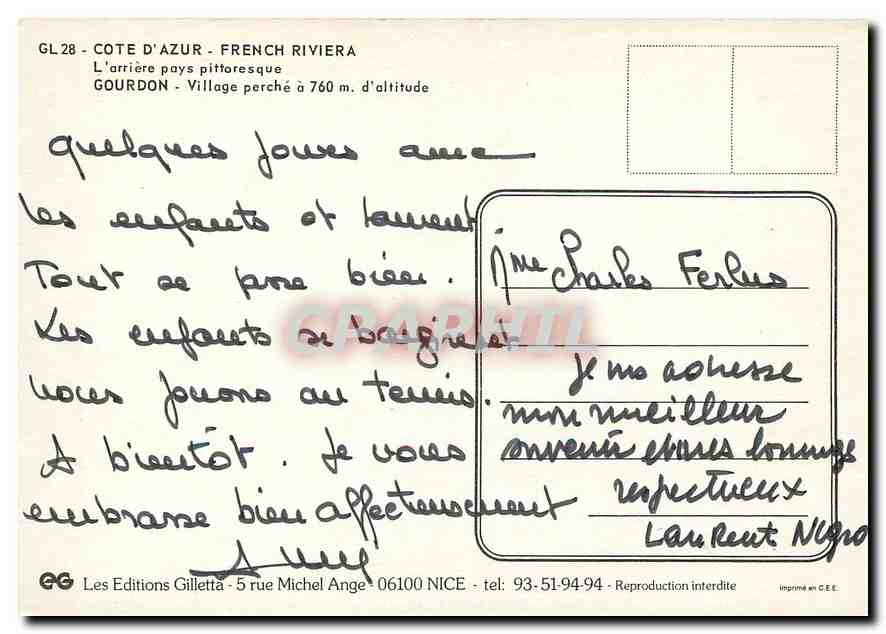 GL 28 - COTE D'AZUR - FRENCH RIVIERA
L'arrière pays pittoresque
GOURDON - Village perché à 760 m. d'altitude
quelques jours avec
les enfants et Laurent.
Tout se passe bien.
Les enfants se baignent
nous jouons au tennis.
A bientôt. Je vous
embrasse bien affectueusement
Mme Charles Ferlus
Je vous adresse
mon meilleur
souvenir et mes hommages
respectueux
Laurent Nigro
CPARHIL
EG Les Editions Gilletta - 5 rue Michel Ange - 06100 NICE - tel: 93-51-94-94 - Reproduction interdite
imprimé en C.E.E.